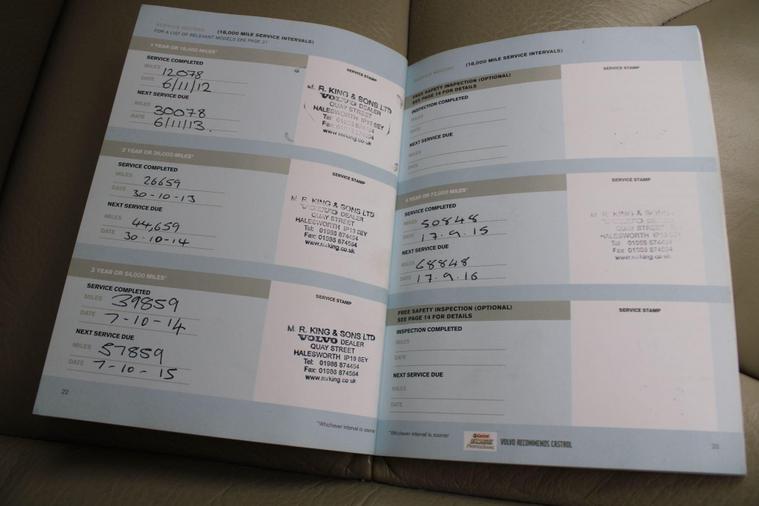 SERVICE RECORD (18,000 MILE SERVICE INTERVALS)
FOR A LIST OF RELEVANT MODELS SEE PAGE 21
1 YEAR OR 18,000 MILES*
SERVICE COMPLETED
MILES 12078
DATE 6/11/12
NEXT SERVICE DUE
MILES 30078
DATE 6/11/13.
SERVICE STAMP
M. R. KING & SONS LTD
VOLVO DEALER
QUAY STREET
HALESWORTH IP19 8EY
Tel:
Fax:
www.mrking.co.uk
2 YEAR OR 36,000 MILES*
SERVICE COMPLETED
MILES 26659
DATE 30-10-13
NEXT SERVICE DUE
MILES 44,659
DATE 30-10-14
SERVICE STAMP
M. R. KING & SONS LTD
VOLVO DEALER
QUAY STREET
HALESWORTH IP19 8EY
Tel: 01986 874464
Fax: 01986 874564
www.mrking.co.uk
3 YEAR OR 54,000 MILES*
SERVICE COMPLETED
MILES 39859
DATE 7-10-14
NEXT SERVICE DUE
MILES 57859
DATE 7-10-15
SERVICE STAMP
M. R. KING & SONS LTD
VOLVO DEALER
QUAY STREET
HALESWORTH IP19 8EY
Tel: 01986 874464
Fax: 01986 874564
www.mrking.co.uk
22
*Whichever interval is sooner
SERVICE RECORD (18,000 MILE SERVICE INTERVALS)
FREE SAFETY INSPECTION (OPTIONAL)
SEE PAGE 14 FOR DETAILS
INSPECTION COMPLETED
MILES
DATE
NEXT SERVICE DUE
MILES
DATE
SERVICE STAMP
4 YEAR OR 72,000 MILES*
SERVICE COMPLETED
MILES 50848
DATE 17.9.15
NEXT SERVICE DUE
MILES 68848
DATE 17.9.16
SERVICE STAMP
M. R. KING & SONS
VOLVO DEALER
QUAY STREET
HALESWORTH IP19 8EY
Tel: 01986 874464
Fax: 01986 874564
www.mrking.co.uk
FREE SAFETY INSPECTION (OPTIONAL)
SEE PAGE 14 FOR DETAILS
INSPECTION COMPLETED
MILES
DATE
NEXT SERVICE DUE
MILES
DATE
SERVICE STAMP
*Whichever interval is sooner
Castrol
VOLVO RECOMMENDS CASTROL